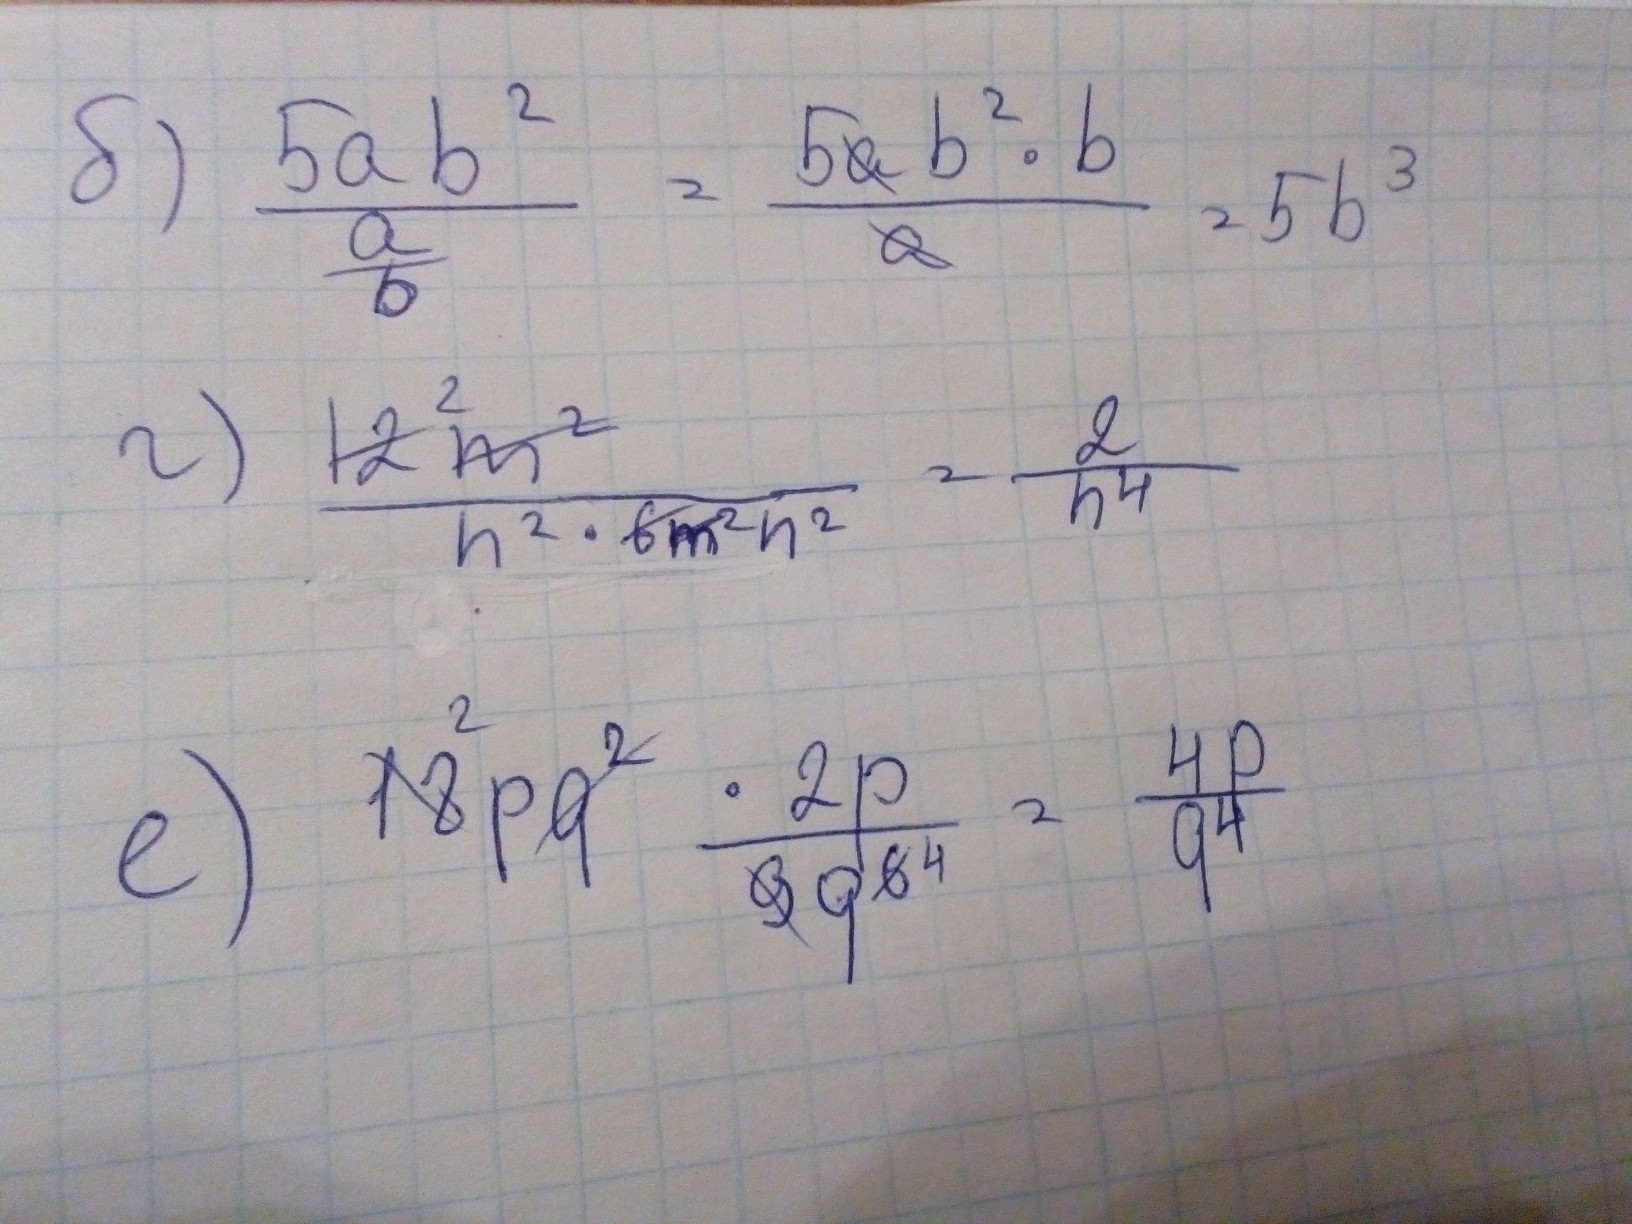 б) 5ab² / (a/b) = 5ab² · b / a = 5b³
г) 12² m² / n² · 6m²n² = 2 / n⁴
е) 18² pq² · 2p / 9q⁶ ⁴ = 4p / q⁴